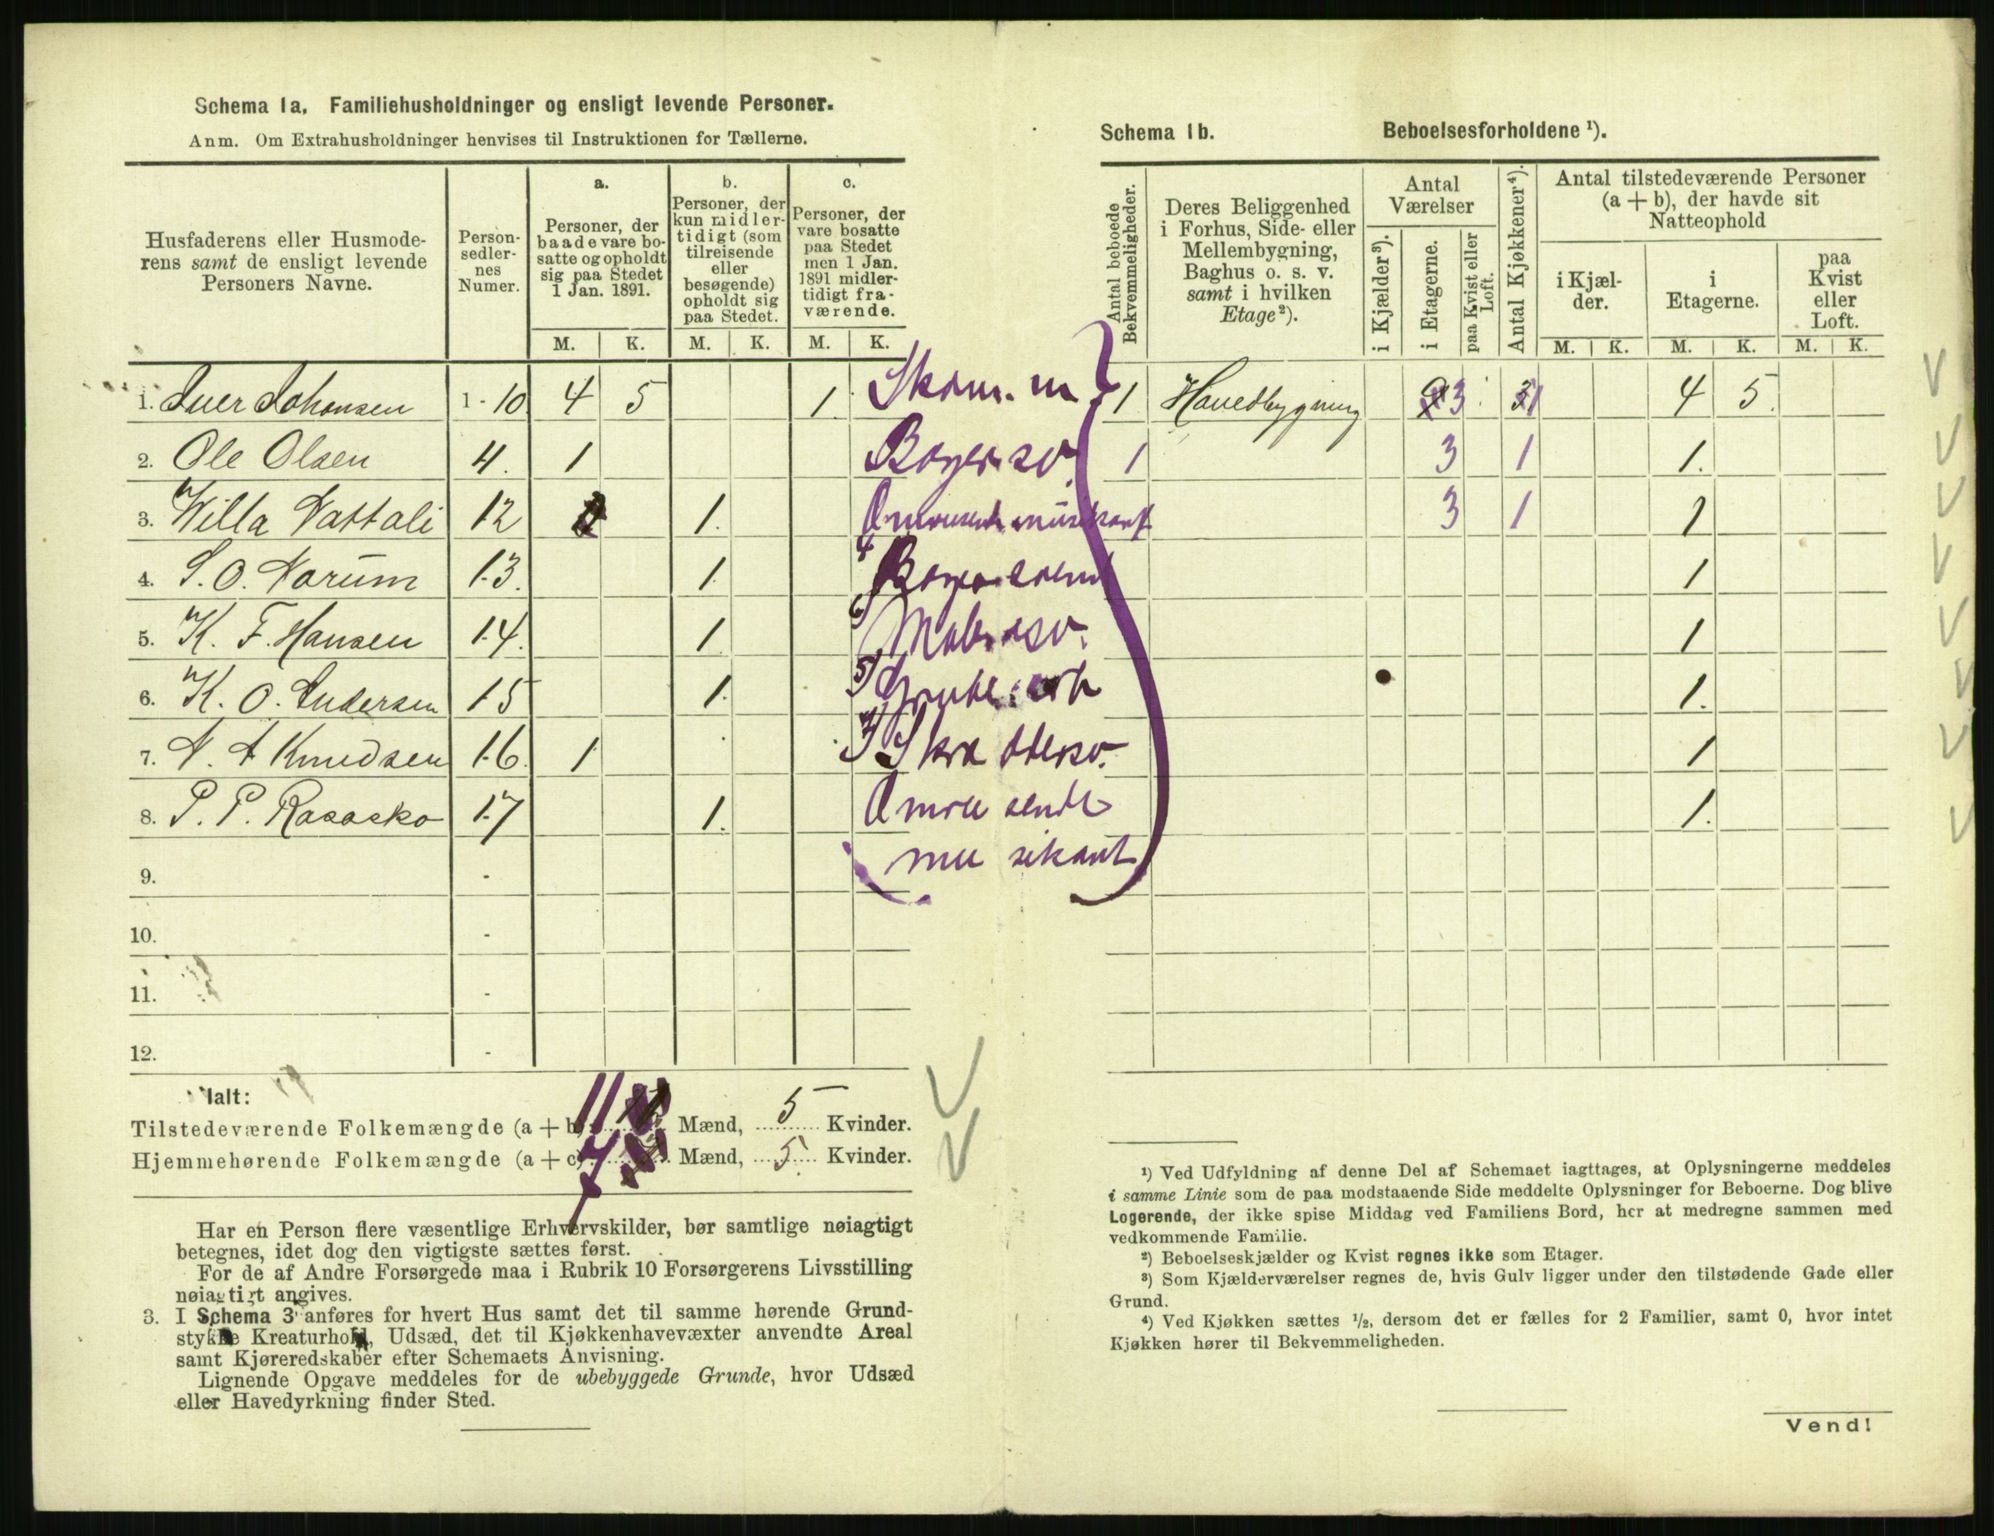 Schema 1a. Familiehusholdninger og ensligt levende Personer.
Anm. Om Extrahusholdninger henvises til Instruktionen for Tællerne.
Husfaderens eller Husmode-
rens samt de ensligt levende
Personers Navne.
Person-
sedler-
nes
Numer.
a.
Personer, der
baade vare bo-
satte og opholdt
sig paa Stedet
1 Jan. 1891.
b.
Personer, der
kun midler-
tidigt (som
tilreisende
eller
besøgende)
opholdt sig
paa Stedet.
c.
Personer, der
vare bosatte
paa Stedet
men 1 Jan.
1891 midler-
tidigt fra-
værende.
M. K. M. K. M. K.
1. Iver Johansen 1-10 4 5 1. Skom. m
2. Ole Olsen 4. 1 Bagersv.
3. Willa Nattali 12 1. Omreisende musikant
4. S. O. Narum 13. 1. 4 Bagersvend
5. K. F. Hansen 14. 1. 6 Malersv.
6. K. O. Andersen 15 1. 5)
7. N. A Knudsen 16. 1 Skrædersv.
8. P. P. Rasasko 17 1. Omreisende
musikant
9. -
10. -
11. -
12. -
Ialt:
Tilstedeværende Folkemængde (a + b) 11 Mænd, 5 Kvinder.
Hjemmehørende Folkemængde (a + c) 7 Mænd, 5. Kvinder.
Har en Person flere væsentlige Erhvervskilder, bør samtlige nøiagtigt
betegnes, idet dog den vigtigste sættes først.
For de af Andre Forsørgede maa i Rubrik 10 Forsørgerens Livsstilling
nøiagtigt angives.
3. I Schema 3 anføres for hvert Hus samt det til samme hørende Grund-
stykke Kreaturhold, Udsæd, det til Kjøkkenhavevæxter anvendte Areal
samt Kjøreredskaber efter Schemaets Anvisning.
Lignende Opgave meddeles for de ubebyggede Grunde, hvor Udsæd
eller Havedyrkning finder Sted.
Schema 1b. Beboelsesforholdene ¹).
Antal beboede
Bekvemmeligheder.
Deres Beliggenhed
i Forhus, Side- eller
Mellembygning,
Baghus o. s. v.
samt i hvilken
Etage²).
Antal
Værelser
i Kjælder³).
i Etagerne.
paa Kvist eller
Loft.
Antal Kjøkkener⁴).
Antal tilstedeværende Personer
(a + b), der havde sit
Natteophold
i Kjæl-
der.
i
Etagerne.
paa
Kvist
eller
Loft.
M. K. M. K. M. K.
1 Hovedbygning 3 1 4 5.
1 3 1 1.
3 1 1
1
1
1.
1
1.
¹) Ved Udfyldning af denne Del af Schemaet iagttages, at Oplysningerne meddeles
i samme Linie som de paa modstaaende Side meddelte Oplysninger for Beboerne. Dog blive
Logerende, der ikke spise Middag ved Familiens Bord, her at medregne sammen med
vedkommende Familie.
²) Beboelseskjælder og Kvist regnes ikke som Etager.
³) Som Kjælderværelser regnes de, hvis Gulv ligger under den tilstødende Gade eller
Grund.
⁴) Ved Kjøkken sættes ½, dersom det er fælles for 2 Familier, samt 0, hvor intet
Kjøkken hører til Bekvemmeligheden.
Vend!